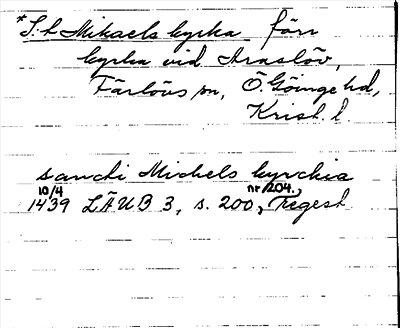 *S:t Mikaels kyrka förr
kyrka vid Araslöv,
Färlövs sn, Ö. Göinge hd,
Krist. l.
sancti Michels kyrchia
10/4 nr 204.,
1439 LÄUB 3, s. 200, Regest